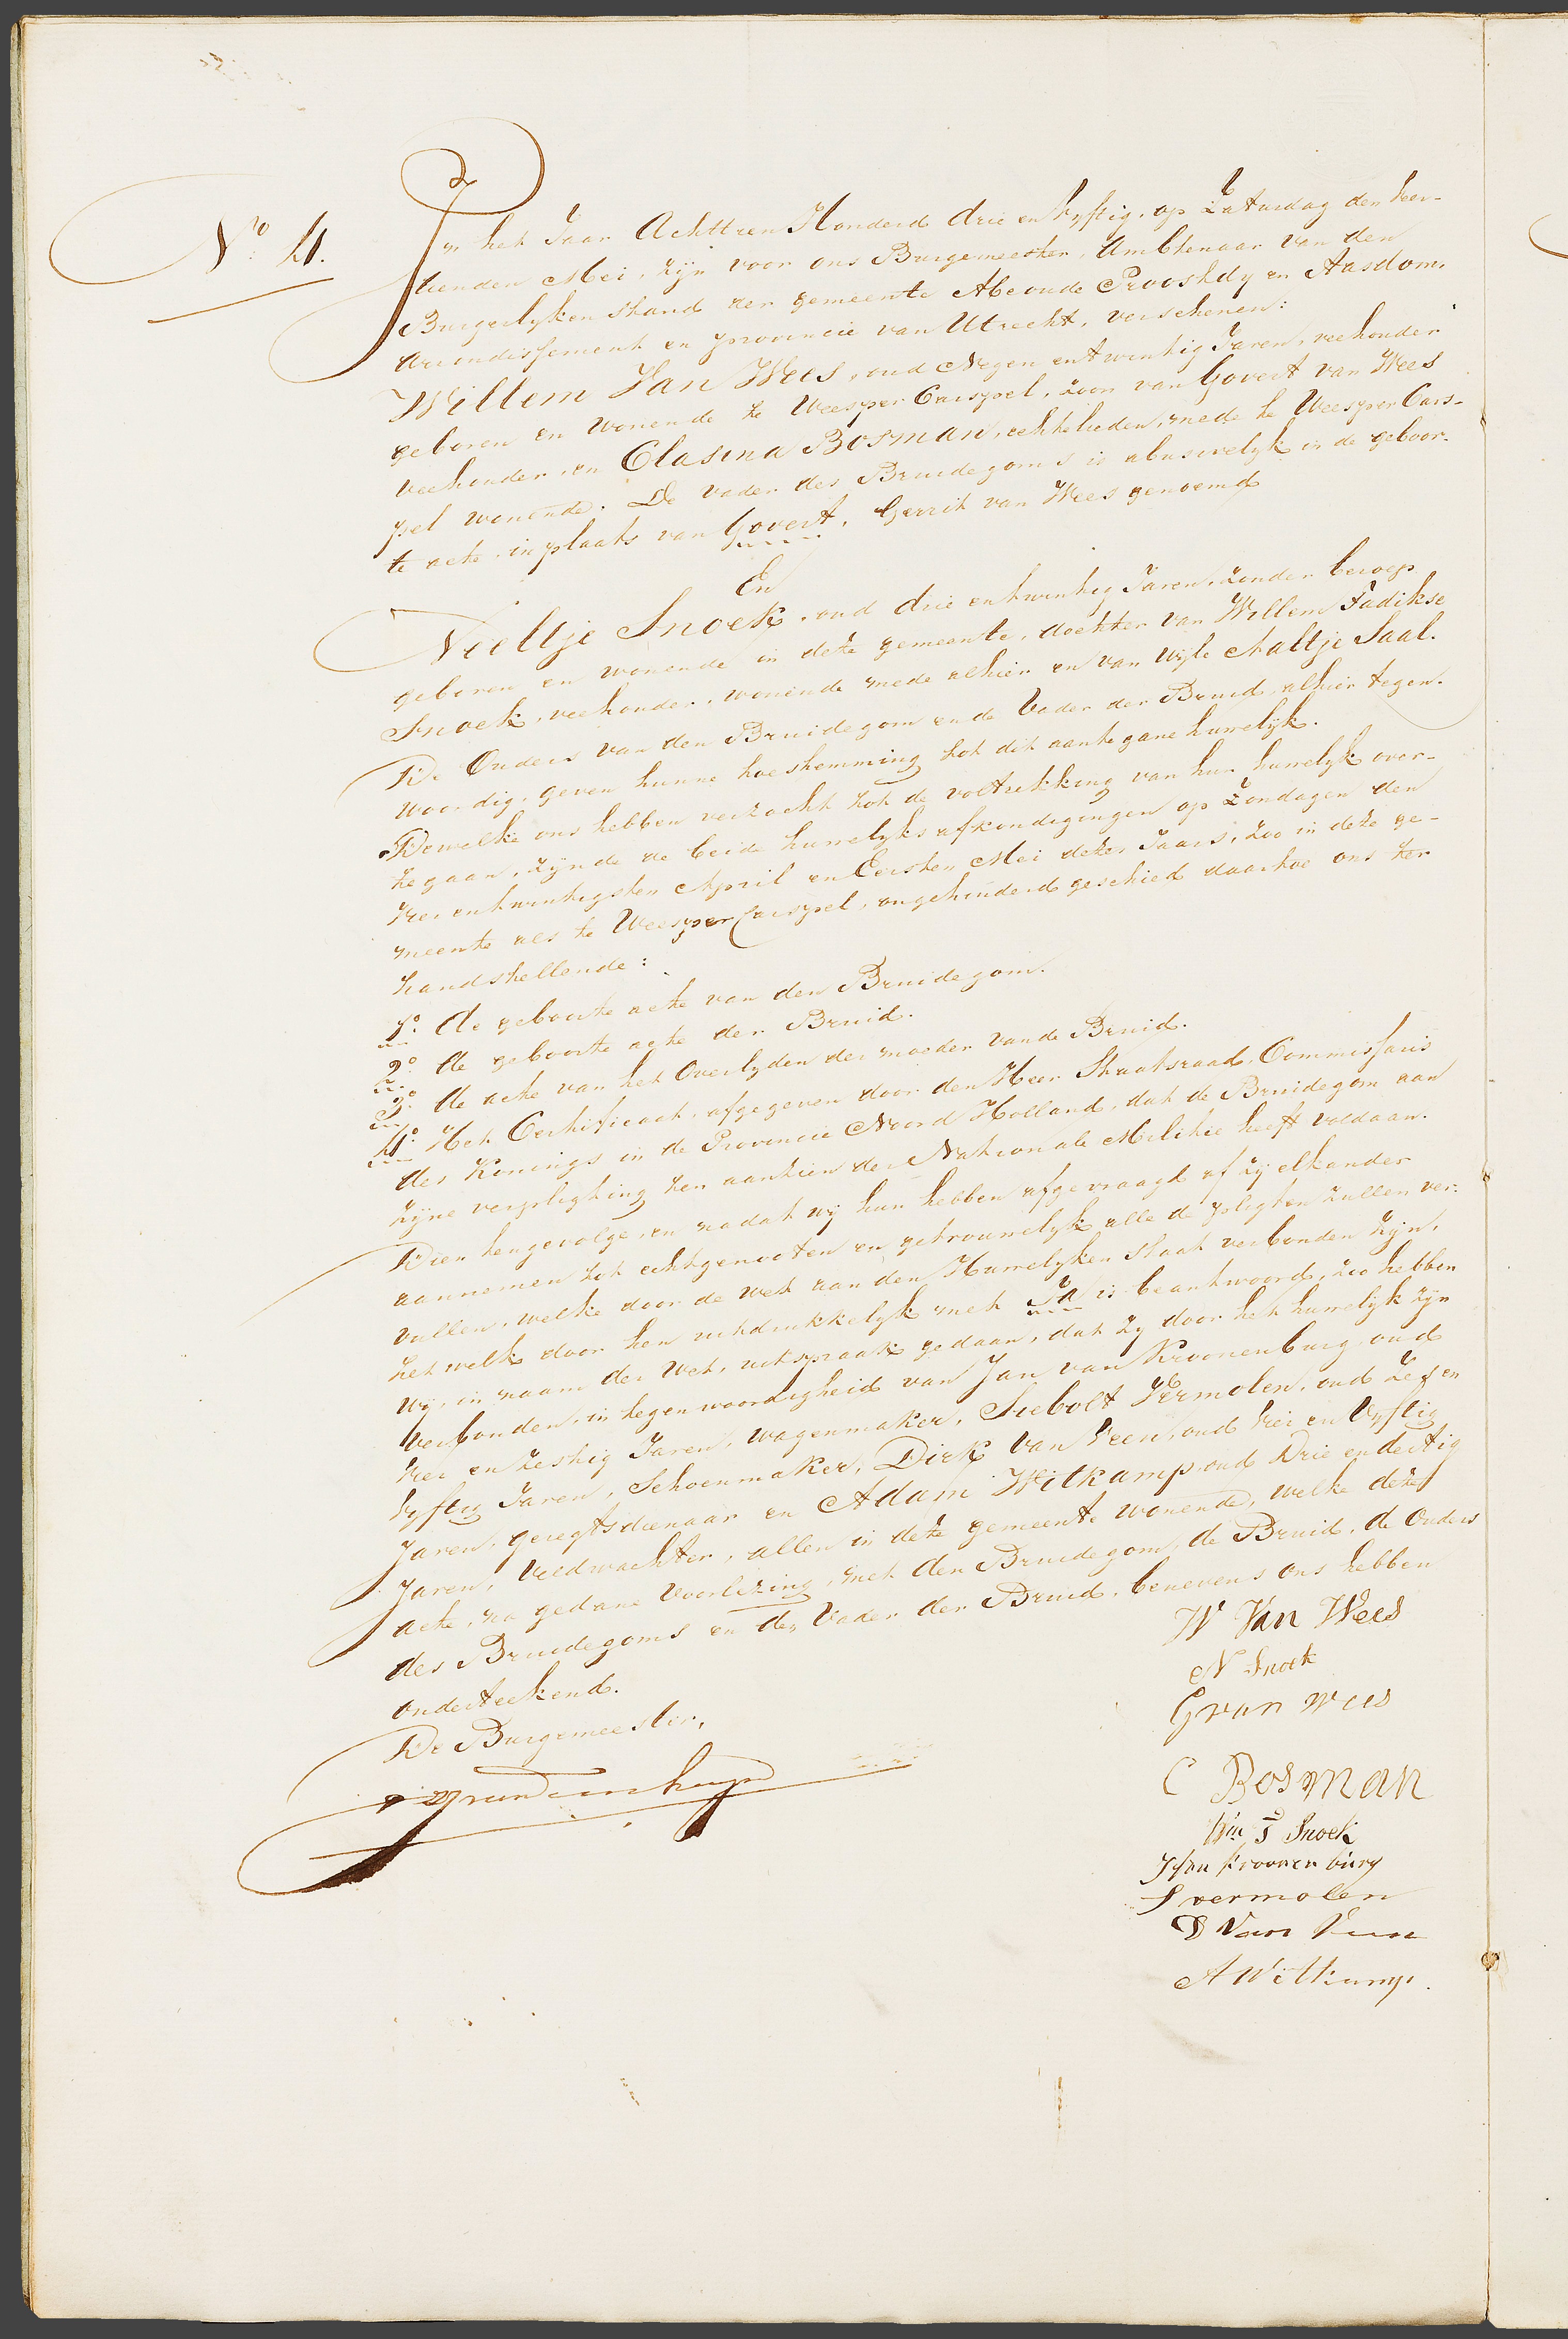 No. 4.
In het Jaar Achttien Honderd drie en vyftig, op Zaturdag den veer-
tienden Mei, zijn voor ons Burgemeester, Ambtenaar van den
Burgerlyken stand der gemeente Abcoude Proostdy en Aasdom,
arrondissement en provincie van Utrecht, verschenen:
Willem Van Wees, oud Negen en twintig Jaren, veehouder
geboren en wonende te Weesper Carspel, zoon van Govert van Wees
veehouder, en Clasina Bosman, echtelieden, mede te Weesper Cars-
pel wonende. De vader des Bruidegoms is abusivelyk in de geboor-
te acte in plaats van Govert, Gerrit van Wees genoemd
En
Neeltje Snoek, oud drie en twintig Jaren, zonder beroep
geboren en wonende in deze gemeente, dochter van Willem Fadikse
Snoek, veehouder, wonende mede alhier en van wyle Aaltje Saal.
De Ouders van den Bruidegom en de Vader der Bruid, alhier tegen-
woordig, geven hunne toestemming tot dit aantegane huwelijk.
Dewelke ons hebben verzocht tot de voltrekking van hun huwelyk over-
tegaan, zijnde de beide huwelyks afkondigingen op Zondagen den
vier en twintigsten April en Eersten Mei dezer Jaars, zoo in deze ge-
meente als te Weesper Carspel, ongehinderd geschied daartoe ons ter
hand stellende:
1o. de geboorte acte van den Bruidegom.
2o. de geboorte acte der Bruid.
3o. de acte van het Overlyden der moeder van de Bruid.
4o. Het Certificaat, afgegeven door den Heer Staatsraad, Commissaris
des Konings in de Provincie Noord Holland, dat de Bruidegom aan
zijne verpligting ten aanzien der Nationale Militie heeft voldaan.
Dien tengevolge, en nadat wij hun hebben afgevraagd of zij elkander
aannemen tot echtgenooten en getrouwelyk alle de pligten zullen ver-
vullen, welke door de wet aan den Huwelyken staat verbonden zijn,
het welk door hen uitdrukkelyk met Ja is beantwoord, zoo hebben
wij, in naam der Wet, uitspraak gedaan, dat zy door het huwelijk zijn
verbonden, in tegenwoordigheid van Jan van Kroonenburg, oud
vier en zestig Jaren, wagenmaker, Siebolt Vermolen, oud Zes en
vyftig Jaren, Schoenmaker, Dirk van Veen, oud vier en Vyftig
Jaren, geregtsdienaar en Adam Witkamp, oud Drie en dertig
Jaren, veldwachter, allen in deze gemeente wonende, welke deze
acte, na gedane voorlezing, met den Bruidegom, de Bruid, de Ouders
des Bruidegoms en den Vader der Bruid, benevens ons hebben
onderteekend.
De Burgemeester,
W Van Wees
N Snoek
G van Wees
C Bosman
Wm F Snoek
J van kroonenburg
S vermolen
D Van Veen
A Witkamp.